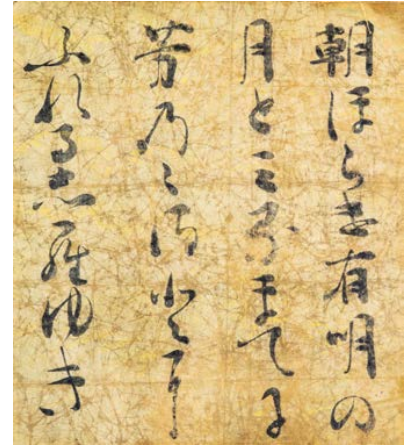 朝ほらけ有明の
月とミるまてに
芳乃ゝさとに
ふれるしらゆき